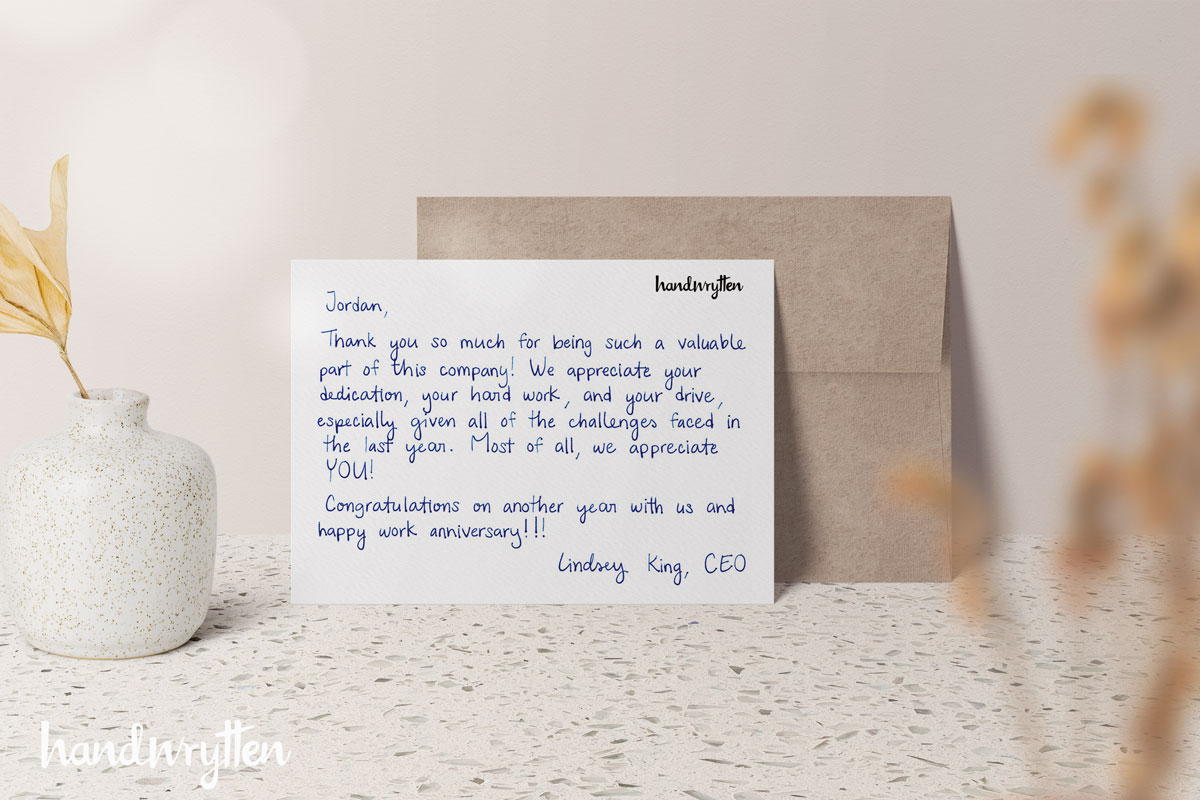 handwrytten
Jordan,
Thank you so much for being such a valuable
part of this company! We appreciate your
dedication, your hard work, and your drive,
especially given all of the challenges faced in
the last year. Most of all, we appreciate
YOU!
Congratulations on another year with us and
happy work anniversary!!!
Lindsey King, CEO
handwrytten